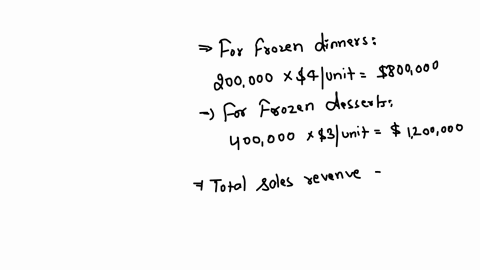 ⇒ For Frozen dinners:
200,000 × $4/unit = $800,000
→ For Frozen desserts:
400,000 × $3/unit = $1,200,000
⇒ Total sales revenue -